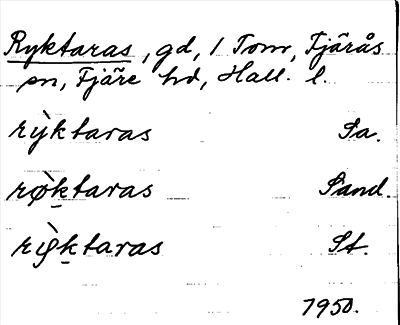 Ryktaras, gd, 1 Tom, Fjärås
sn, Fjäre hd, Hall. l.
rỳktaras Sa.
rø̀k̠taras Sand.
rỳk̠taras St.
1950.